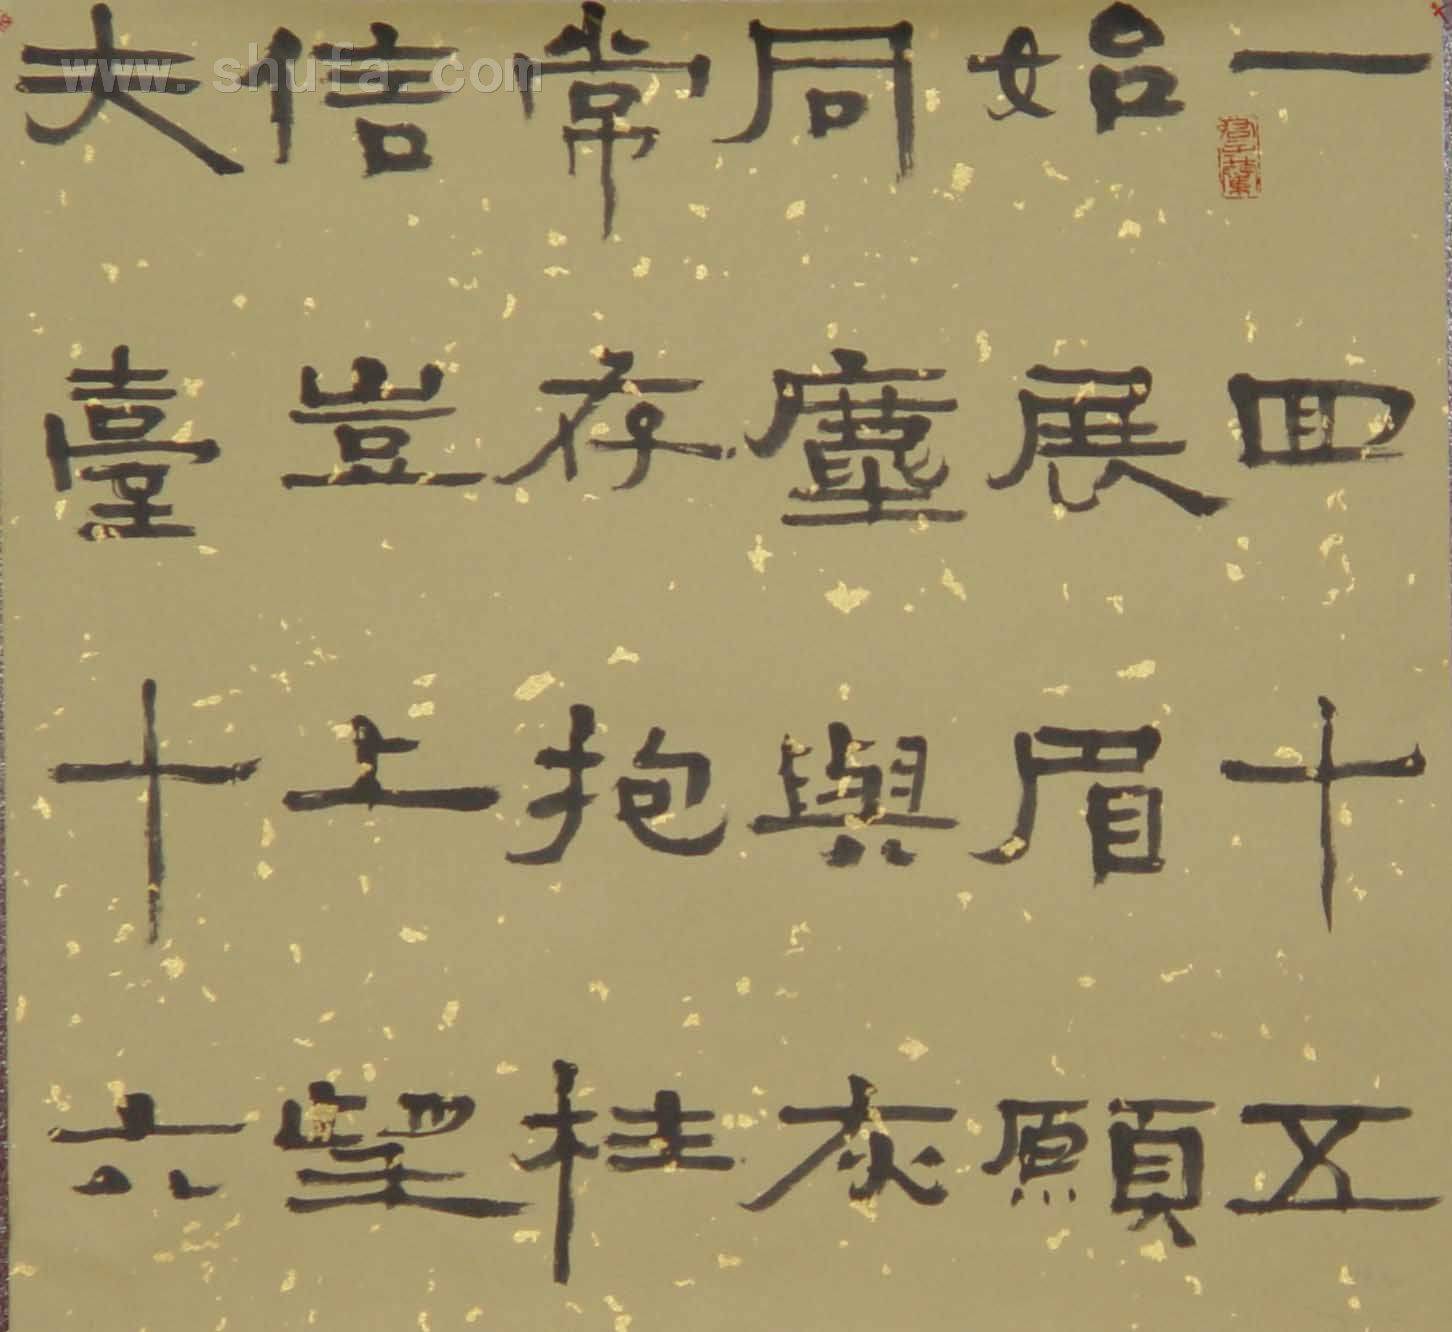 一四十五
始展眉願
同塵與灰
常存抱柱
信豈上望
夫臺十六
www.shufa.com